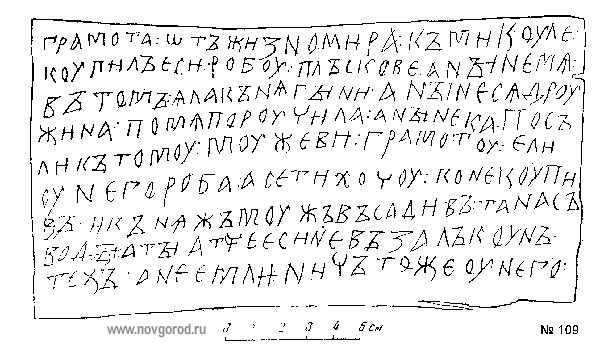 грамота : ѡтъ жизномира : къ микоуле :
коупилъ еси : робоу : плъскове : а нꙑне мѧ :
въ томъ : ѧла кънѧгꙑни : а нꙑне сѧ дроу
жина : по мѧ пороучила : а нꙑне ка : посъ
ли къ томоу : моужеви : грамотоу : ели
оу него роба : а се ти хочоу : коне коупи
въ : и кънѧжъ моужъ въсадивъ : та на съ
водꙑ : а тꙑ атче еси не възалъ коунъ :
техъ : а не емли : ничъто же оу него :
www.novgorod.ru
0 1 2 3 4 5 см
№ 109